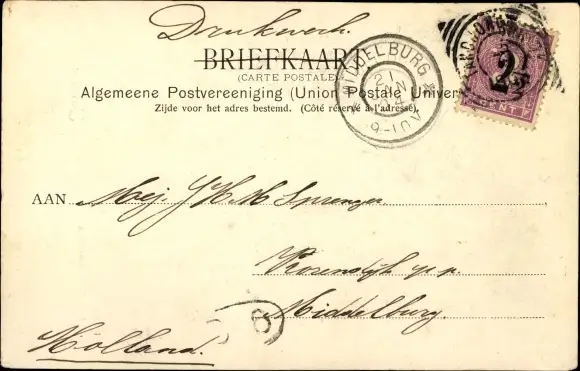 Drukwerk.
BRIEFKAART
(CARTE POSTALE)
Algemeene Postvereeniging (Union Postale Univer
Zijde voor het adres bestemd. (Côté réservé à l'adresse).
MIDDELBURG
21
JAN
4
9-10V
2
AAN Mej. J H M Sprenger
p.p.
Middelburg.
6
Holland.